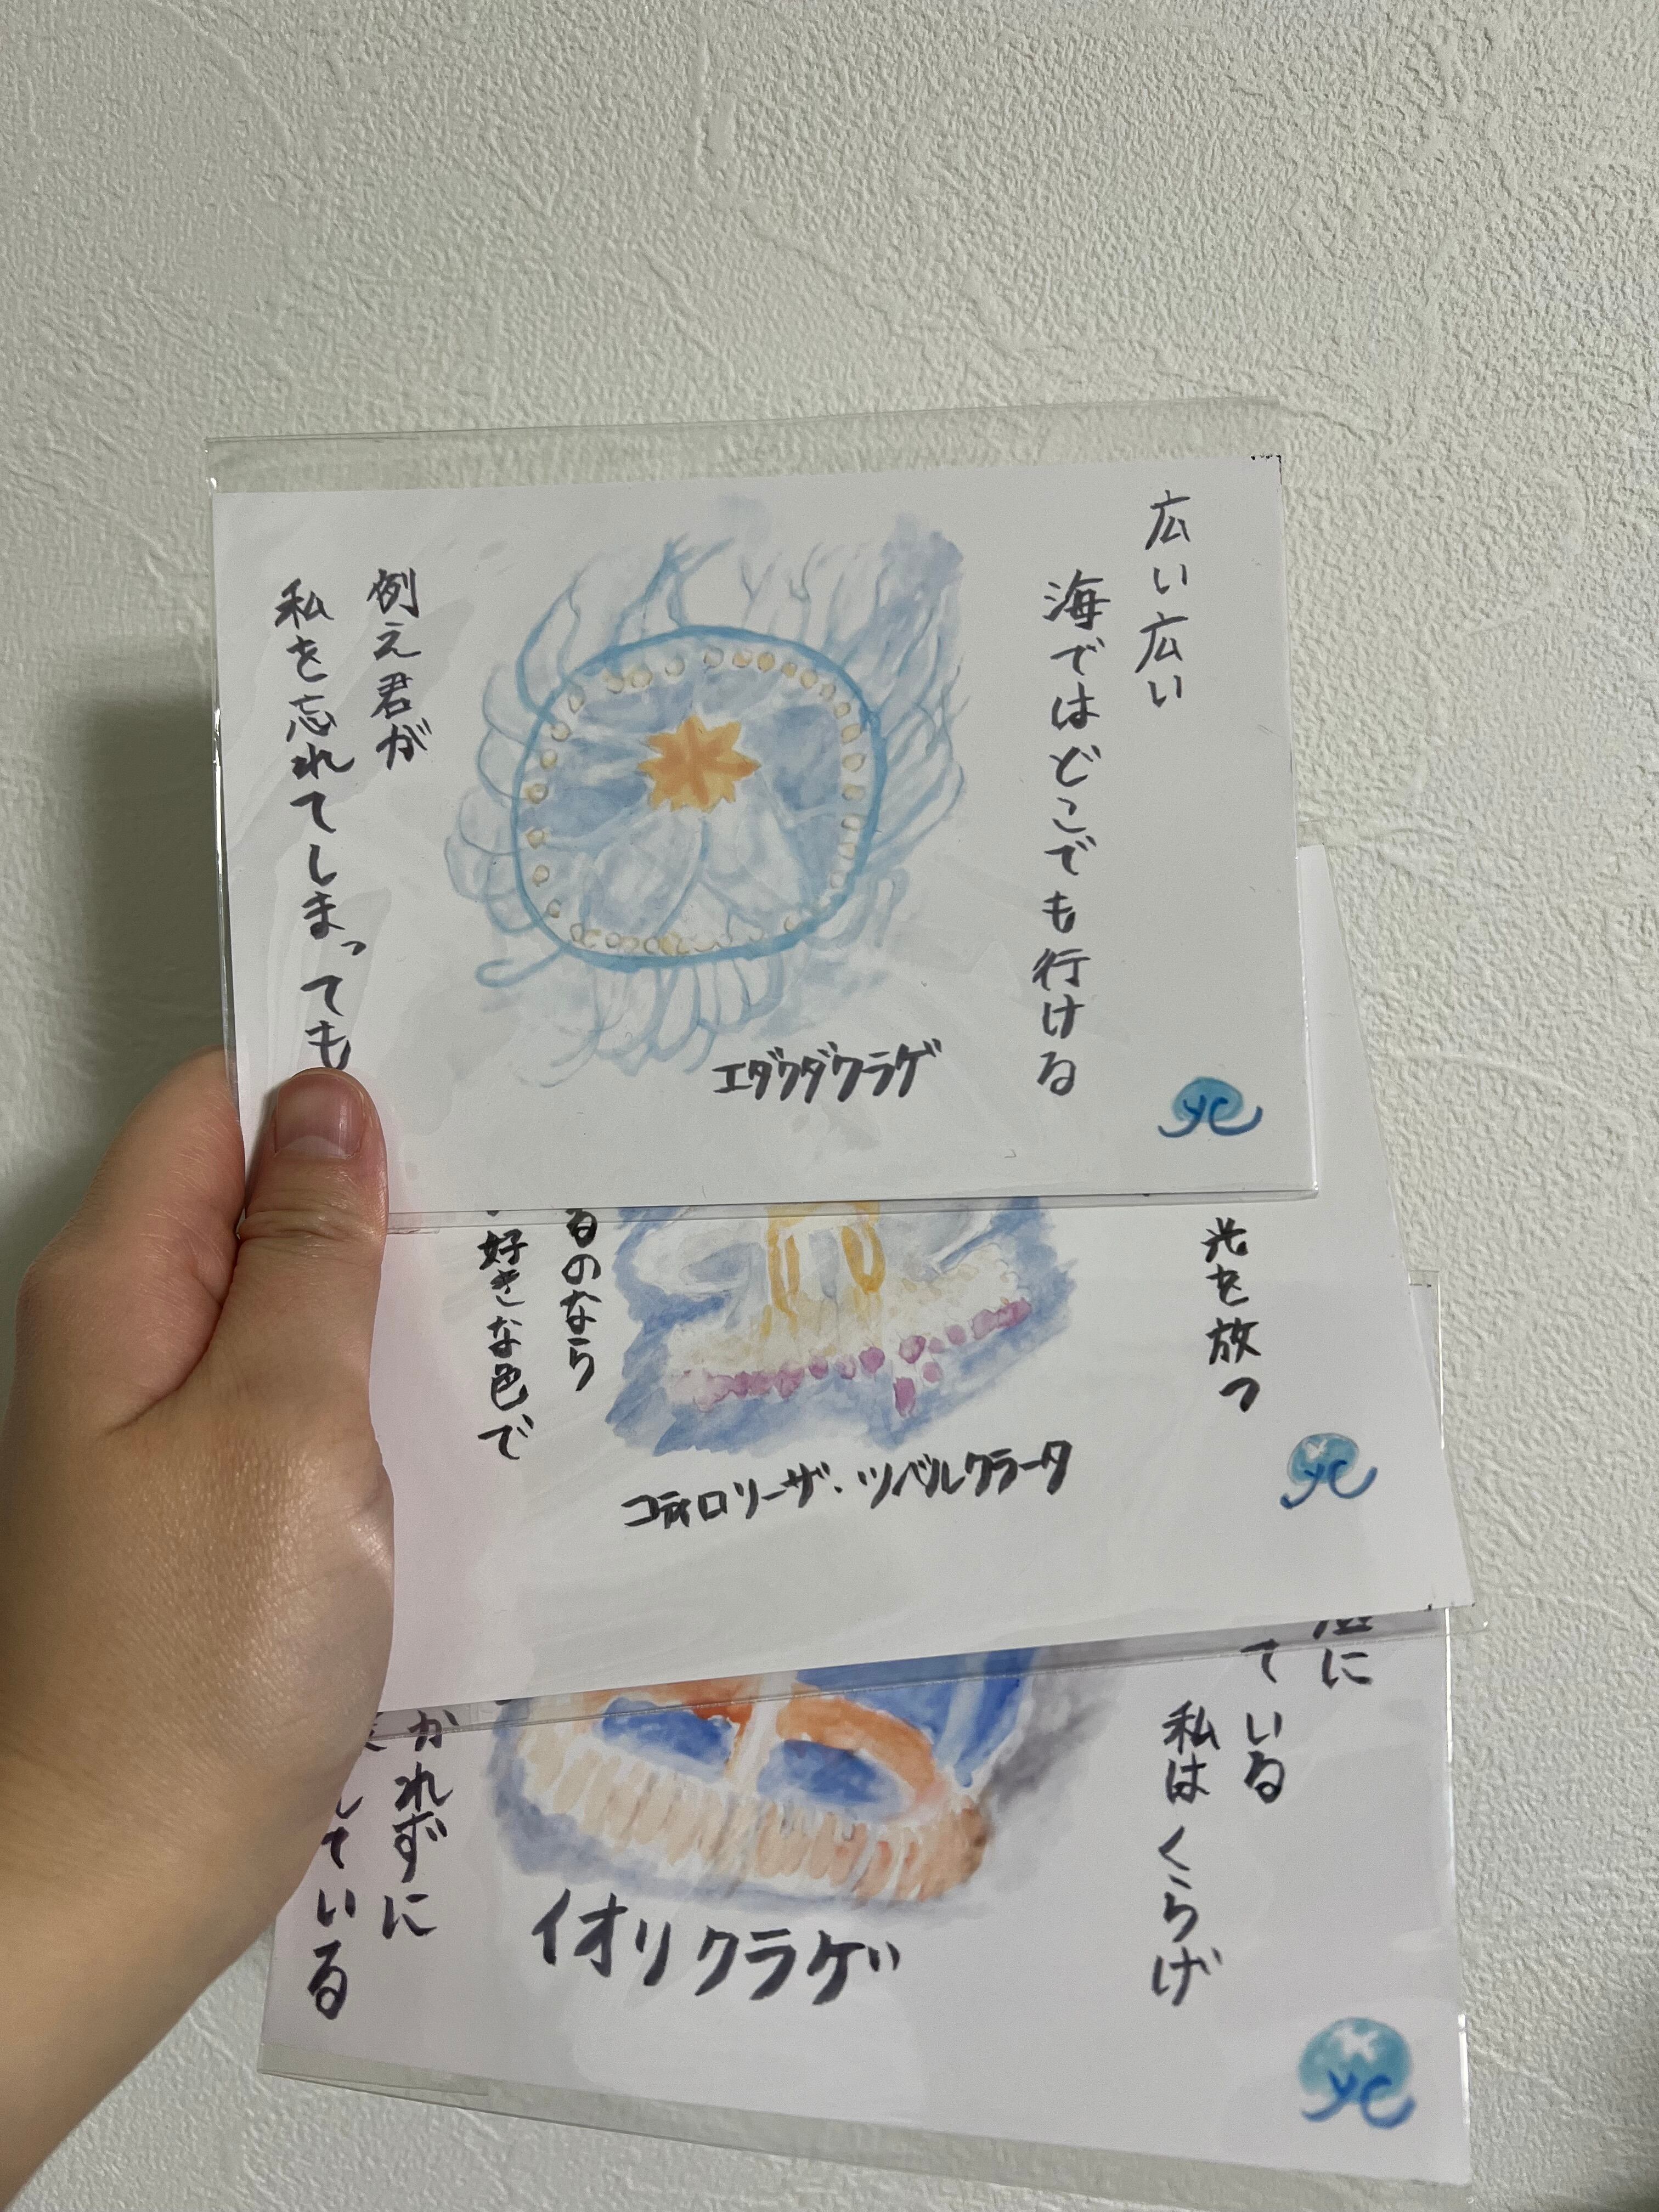 広い広い
海ではどこでも行ける
例え君が
私を忘れてしまっても
エダクダクラゲ
yc
光を放つ
るのなら
好きな色で
コティロリーザ・ツベルクラータ
yc
に
ている
私はくらげ
かれずに
している
イオリクラゲ
yc